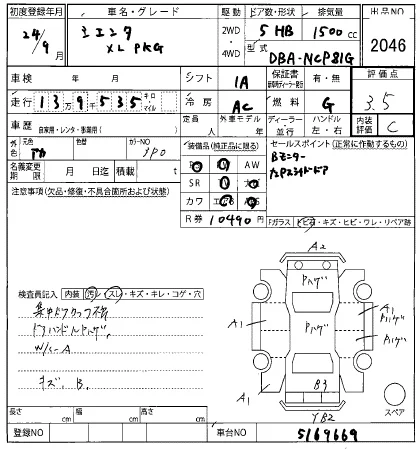 初度登録年月
24/9月
車名・グレード
シエンタ
XL PKG
駆動
2WD
4WD
ドア数・形状
5 HB
排気量
1500 cc
型式
DBA-NCP81G
出品NO
2046
車検 年 月
シフト
IA
保証書
有・無
評価点
3.5
走行
13万9千535
キロ
マイル
冷房
AC
燃料
G
車歴
自家用・レンタ・事業用( )
定員
人
外車モデル
年
ディーラー
並行
ハンドル
左・右
内装評価
C
外色
元色
アカ
色替
カラーNO
3P0
装備品(純正品に限る)
AW
SR
カワ
エアB
セールスポイント(正常に作動するもの)
Bモニター
左Pスライドドア
名義変更期限
月 日迄
積載
t
注意事項(欠品・修復・不具合箇所および状態)
R券
10490円
Fガラス
トビ石・キズ・ヒビ・ワレ・リペア跡
A2
Pハゲ
A1
A1
Pハゲ
Pハゲ
Pハゲ
検査員記入
内装
汚・スレ・キズ・キレ・コゲ・穴
ドアハンドルPハゲ
W/C-A
キズ. B.
B3
A1
A1
YB2
スペア
長さ
cm
幅
cm
高さ
cm
登録NO
車台NO
5169669